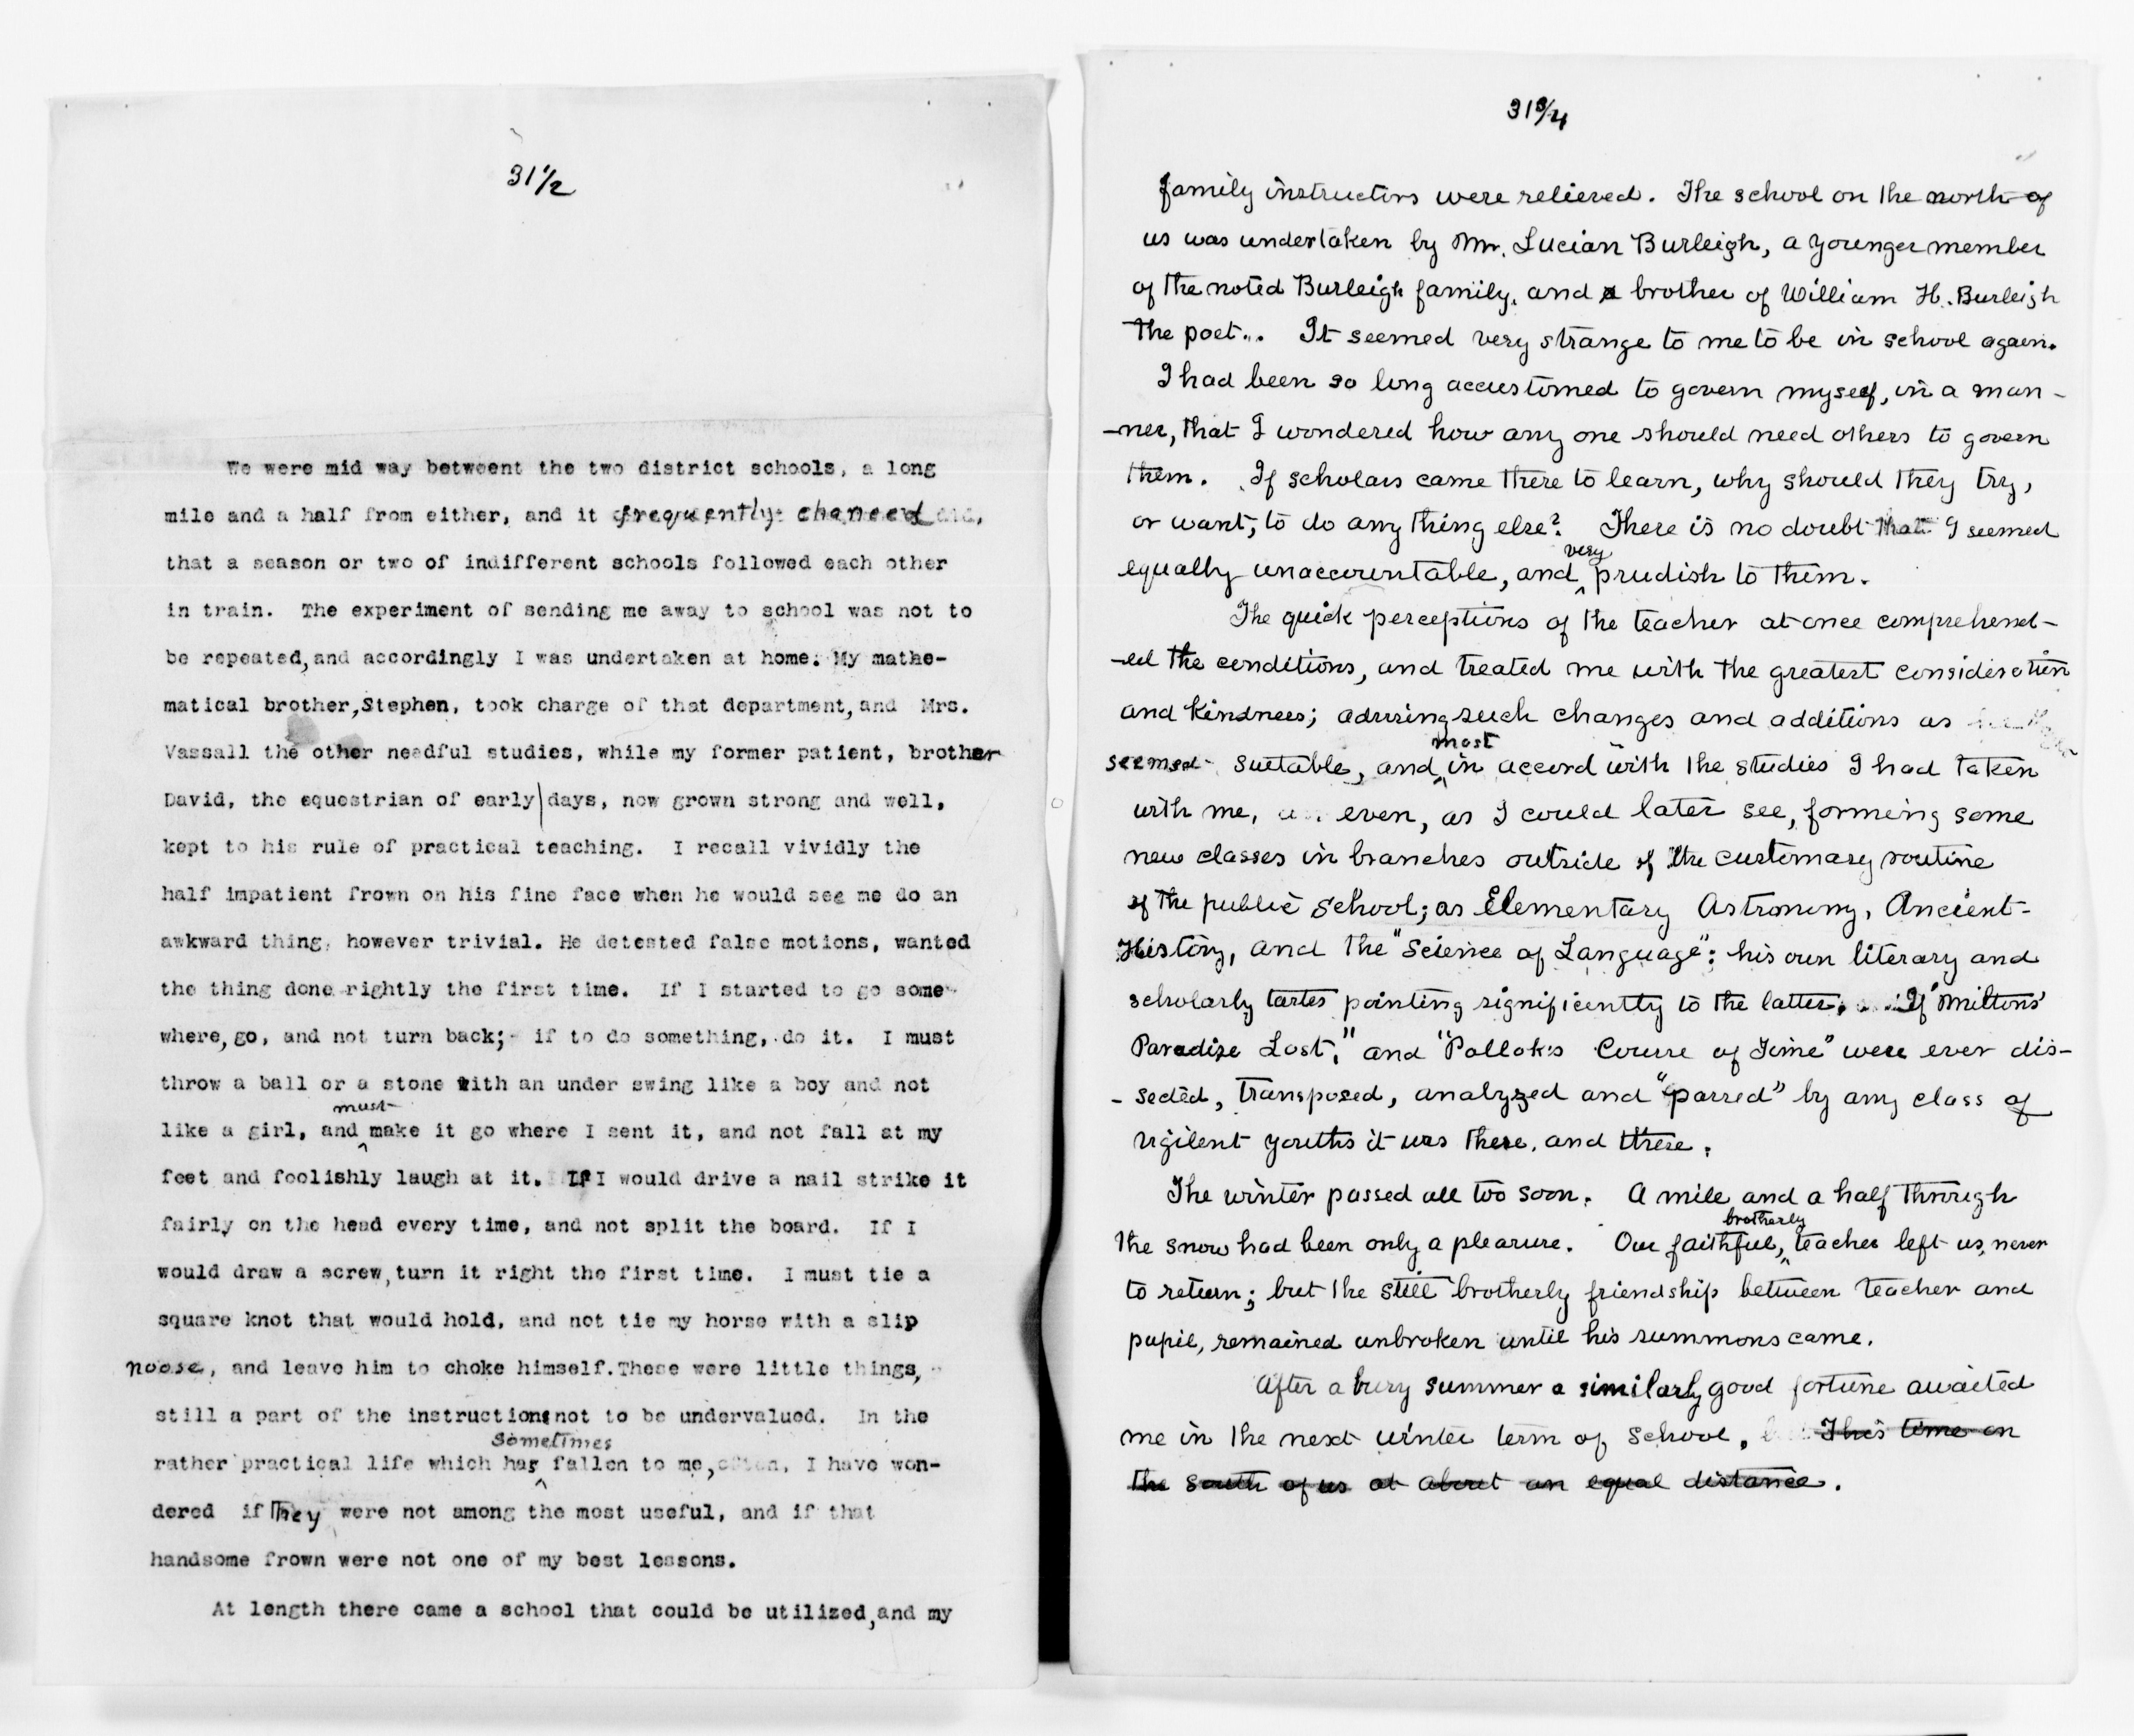 31 1/2
We were mid way betweent the two district schools, a long
mile and a half from either, and it frequently chanced did,
that a season or two of indifferent schools followed each other
in train. The experiment of sending me away to school was not to
be repeated, and accordingly I was undertaken at home. My mathe-
matical brother, Stephen, took charge of that department, and Mrs.
Vassall the other needful studies, while my former patient, brother
David, the equestrian of early days, now grown strong and well,
kept to his rule of practical teaching. I recall vividly the
half impatient frown on his fine face when he would see me do an
awkward thing, however trivial. He detested false motions, wanted
the thing done rightly the first time. If I started to go some-
where, go, and not turn back;- if to do something, do it. I must
throw a ball or a stone with an under swing like a boy and not
must
like a girl, and make it go where I sent it, and not fall at my
feet and foolishly laugh at it. If I would drive a nail strike it
fairly on the head every time, and not split the board. If I
would draw a screw, turn it right the first time. I must tie a
square knot that would hold, and not tie my horse with a slip
noose, and leave him to choke himself. These were little things,
still a part of the instructions not to be undervalued. In the
Sometimes
rather practical life which has fallen to me, often, I have won-
dered if They were not among the most useful, and if that
handsome frown were not one of my best lessons.
At length there came a school that could be utilized, and my
31 3/4
family instructors were relieved. The school on the north of
us was undertaken by Mr. Lucian Burleigh, a younger member
of the noted Burleigh family, and a brother of William H. Burleigh
the poet... It seemed very strange to me to be in school again.
I had been so long accustomed to govern myself, in a man-
-ner, that I wondered how any one should need others to govern
them. If scholars came there to learn, why should they try,
or want, to do any thing else? There is no doubt that I seemed
very
equally unaccountable, and prudish to them.
The quick perceptions of the teacher at once comprehend-
-ed the conditions, and treated me with the greatest consideration
and kindness; advising such changes and additions as
most
seemed suitable, and in accord with the studies I had taken
with me, even, as I could later see, forming some
new classes in branches outside of the customary routine
of the public school; as Elementary Astronomy, Ancient-
History, and the "Science of Language": his own literary and
scholarly tastes pointing significently to the latter. If "Miltons'
Paradise Lost," and "Pollok's Course of Time" were ever dis-
- sected, transposed, analyzed and "parsed" by any class of
vigilent youths it was there, and there.
The winter passed all too soon. A mile and a half through
brotherly
the snow had been only a pleasure. Our faithful, teacher left us, never
to return; but the still brotherly friendship between teacher and
pupil, remained unbroken until his summons came.
After a busy summer a similarly good fortune awaited
me in the next winter term of school, This time on
the south of us at about an equal distance.